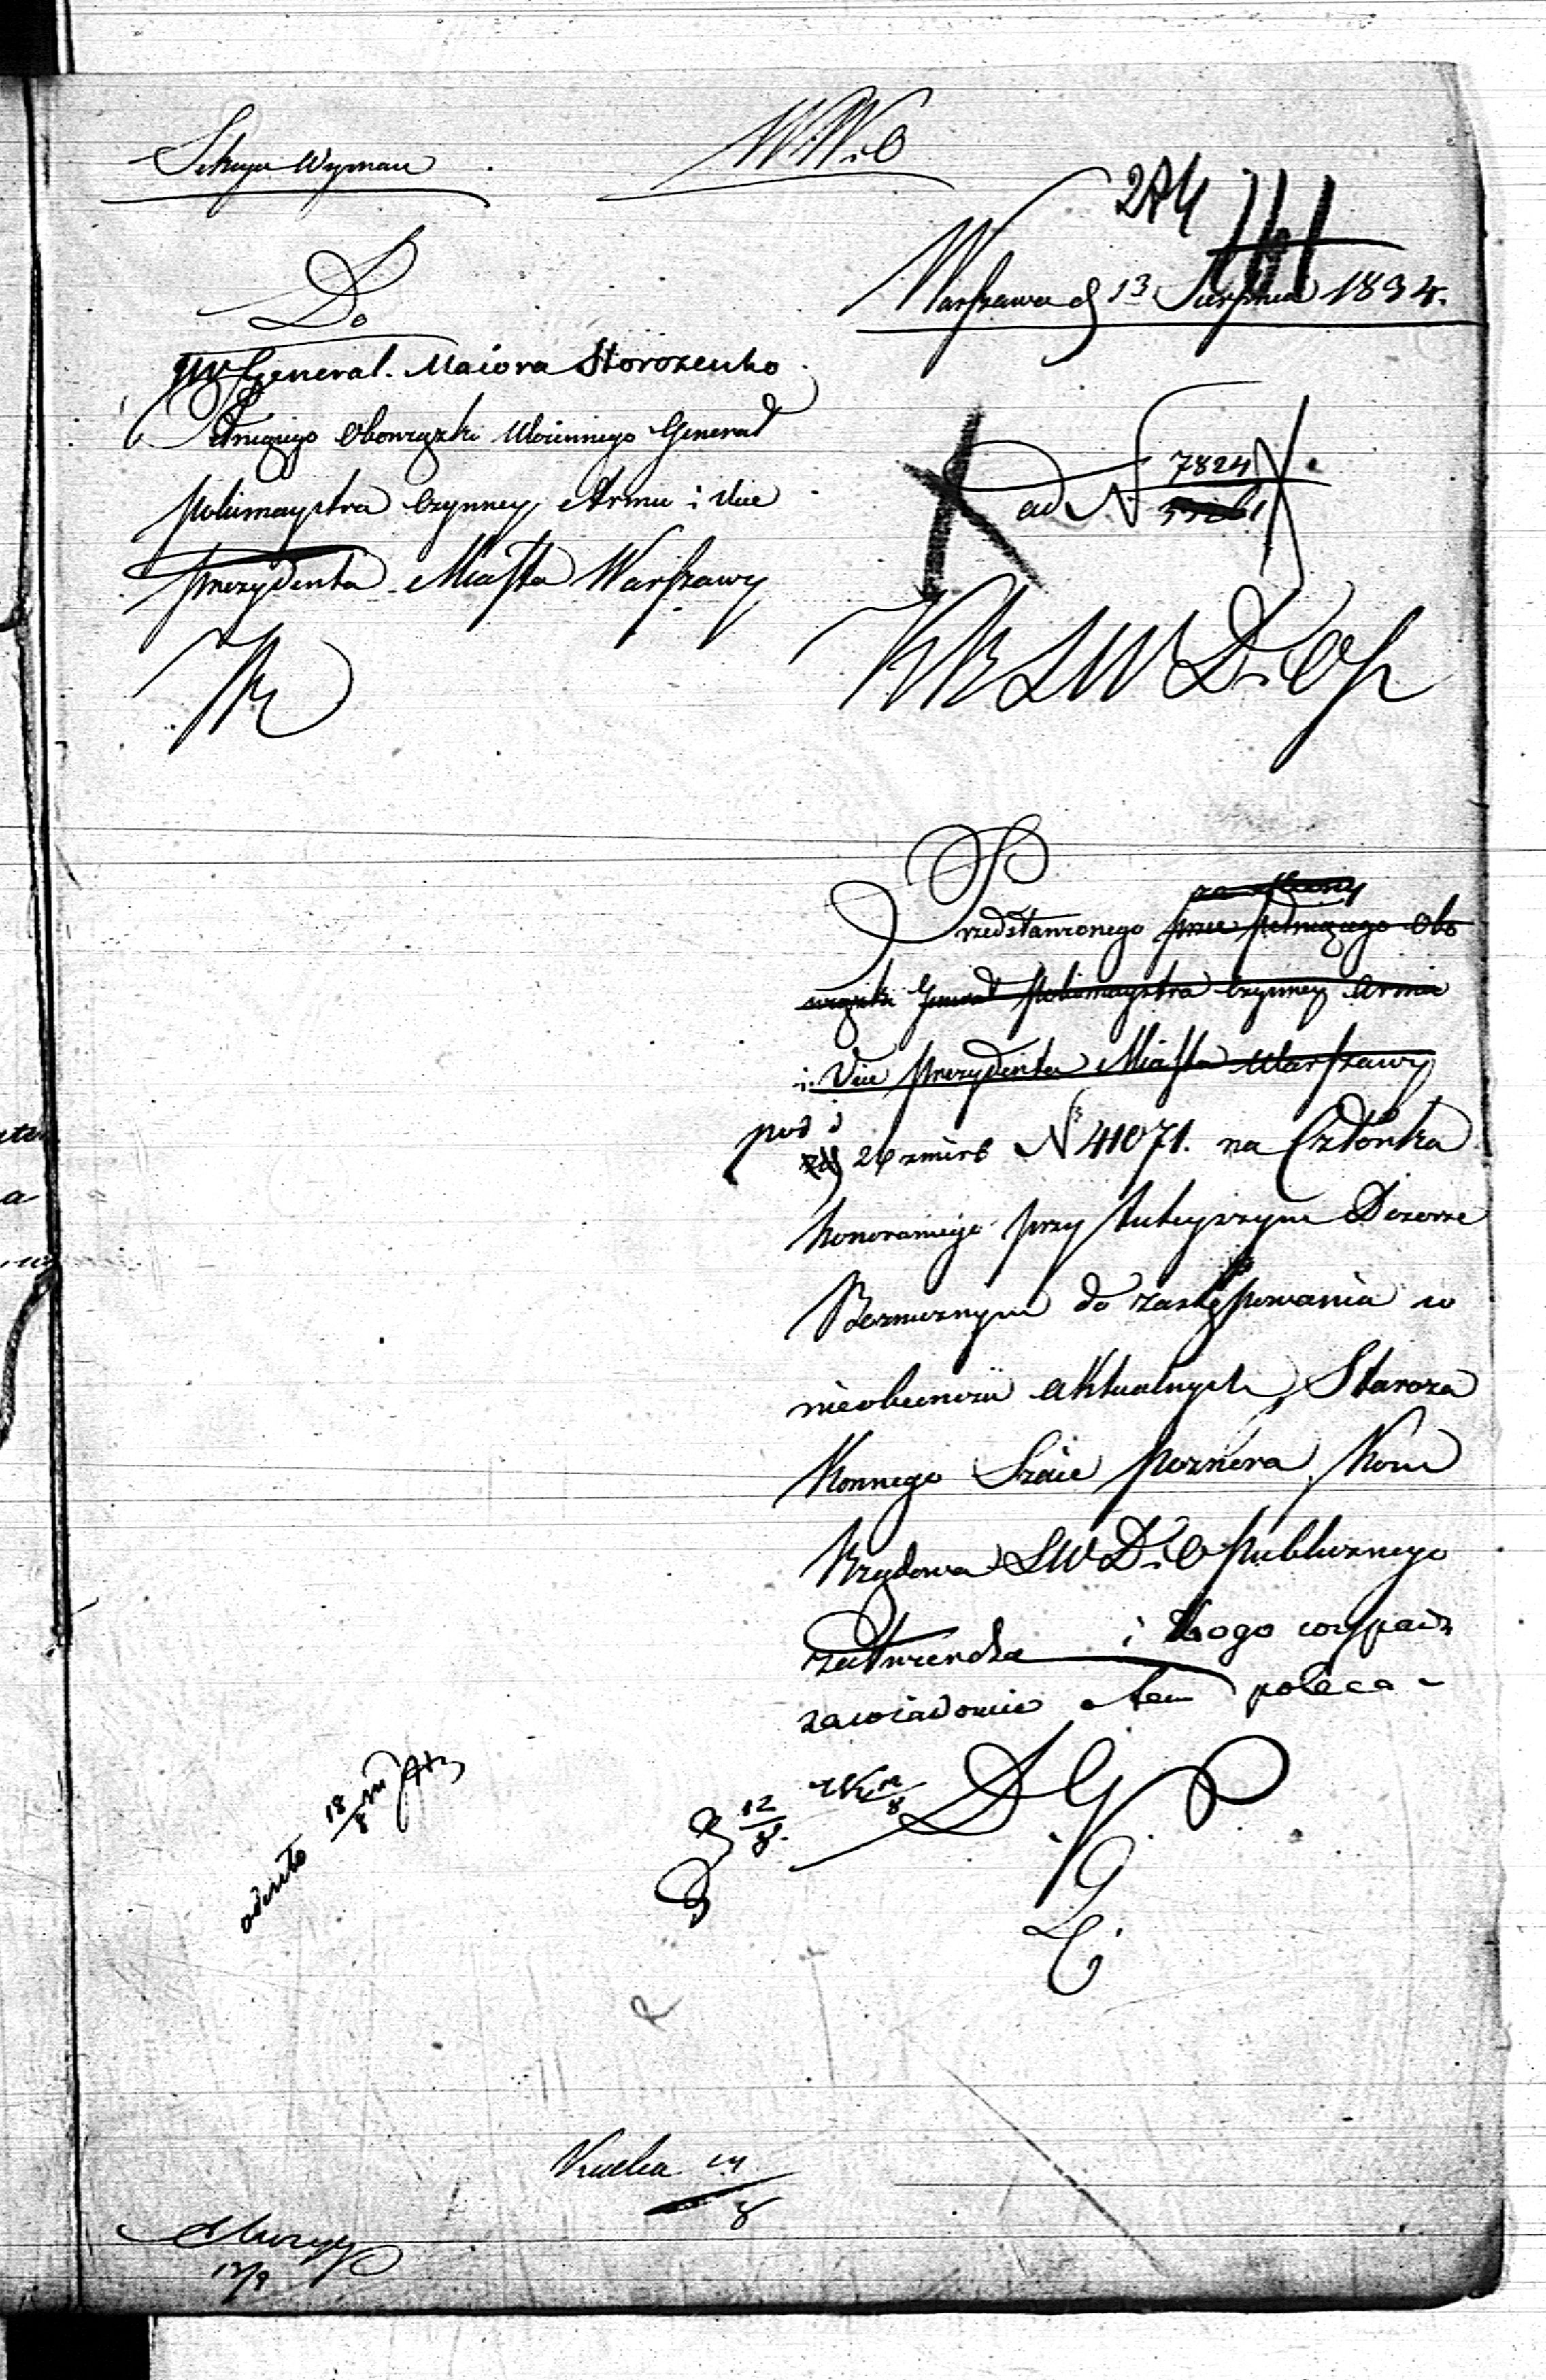 Sekcya Wyznań
W.W.i.O
274
Warszawa d 13 Sierpnia 1834.
Do
JW General. Maiora Storozenko
Pełniącego Obowiązki Woiennego General
Policmaystra Czynney Armii i Vice
Prezydenta Miasta Warszawy
ad N 7824
KRSWDiOP
Przedstawionego przez pełniącego Obo
wiązki General Policmaystra Czynney Armii
i Vice Prezydenta Miasta Warszawy
pod d
26 z mieś N 41071. na Członka
honorowego przy tuteyszym Dozorze
Bozniczym do zastępowania w
nieobecności aktualnych, Staroza
konnego Szaie Poznera, Kom
Rządowa SWDiOPublicznego
zatwierdza i Kogo
zawiadomić o tem poleca
D.G.P.
12/8
18/8
8
12/8